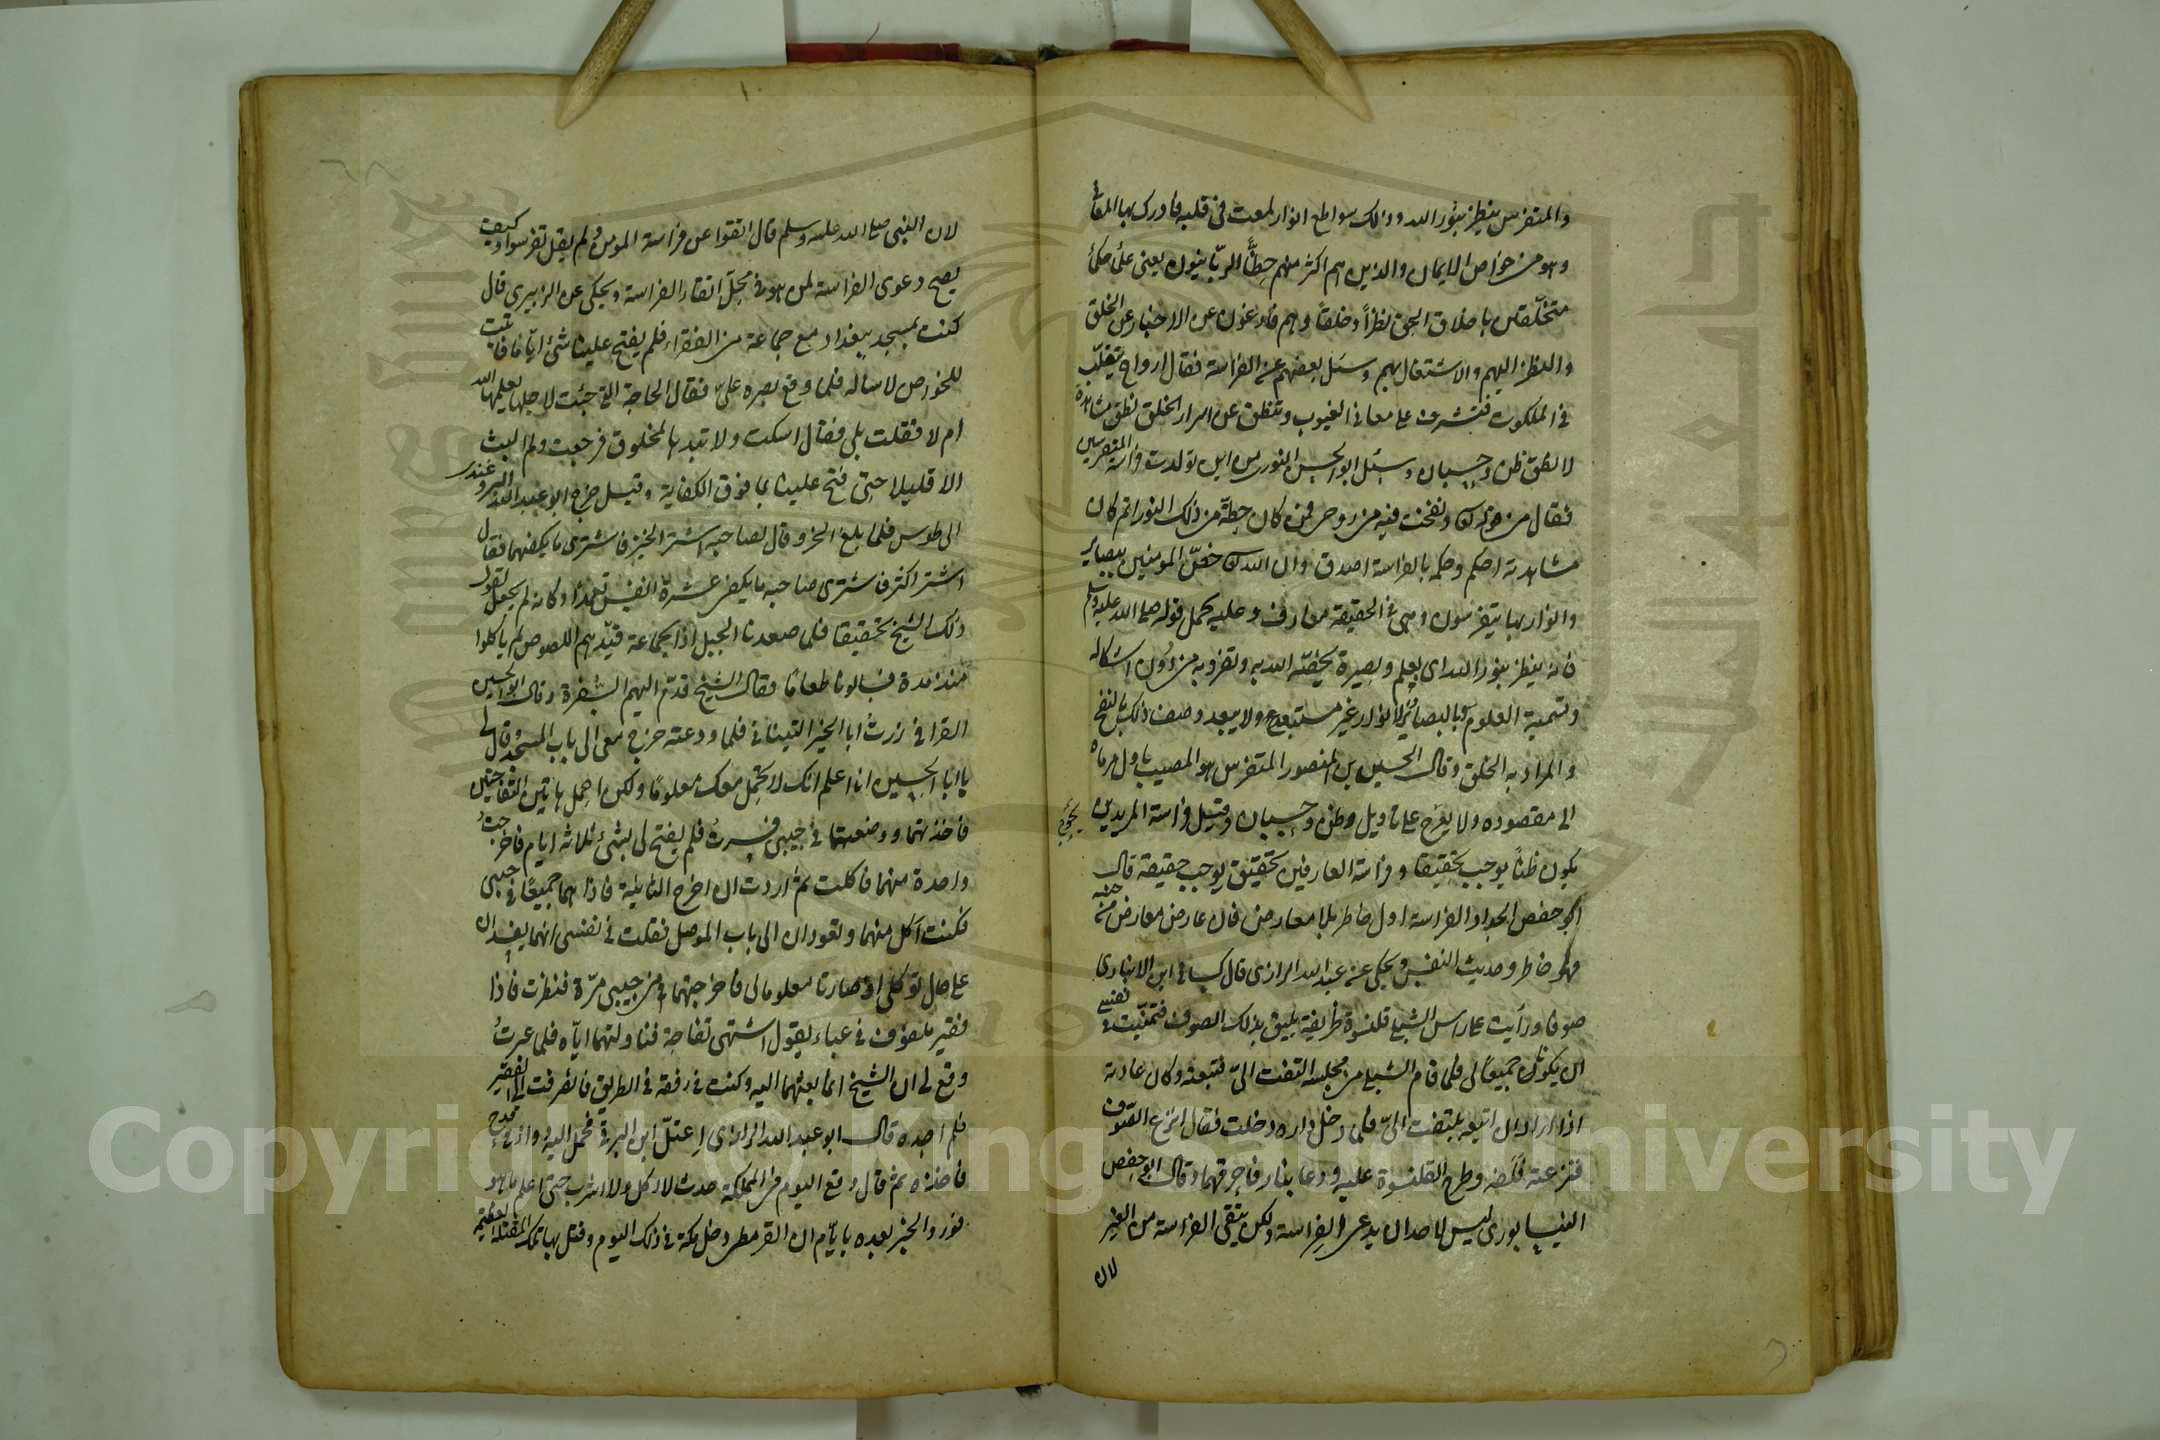 والمتفرس ينظر بنور الله وذلك سواطع انوار لمعت في قلبه فادرك بها المعاني
وهو من خواص الايمان والذين هم اكثر منهم حظًّا الربّانيون يعني علماء حكماء
متخلّقين باخلاق الحق نظراً وخلقاً وهم فارغون عن الاخبار عن الخلق
والنظر اليهم والاشتغال بهم وسئل بعضهم عن الفراسة فقال ارواح تتقلّب
في الملكوت فتشرف على معاني الغيوب وتنطق عن اسرار الخلق نطق مشاهدة
لا نطق ظن وحسبان وسئل ابو الحسن النوري من اين تولدت فراسة المتفرسين
فقال من قوله تعالى ونفخت فيه من روحي فمن كان حظّه من ذلك النور اتم كان
مشاهدته احكم وحكمه بالفراسة اصدق وان الله تعالى خصّ المومنين ببصائر
وانوار بها يتفرسون وهي في الحقيقة معارف وعليه يحمل قوله صلى الله عليه وسلم
فانه ينظر بنور الله اي بعلم وبصيرة يخصّه الله به وتفرد به من دون اشكاله
وتسمية العلوم والبصائر انوار غير مستبدع ولا يبعد وصف ذلك بالنفخ
والمراد به الخلق وقال الحسين بن المنصور المتفرس هو المصيب باول مرماه
الى مقصوده ولا يعرج على تاويل وظن وحسبان وقيل فراسة المريدين
يكون ظنًّا يوجب تحقيقا وفراسة العارفين تحقيق يوجب حقيقة قال
ابو حفص الحداد الفراسة اول خاطر بلا معارض فان عارض معارض من جنسه
فهو خاطر وحديث النفس ويحكى عن عبد الله الرازي قال كساني ابن الانباري
صوفا ورأيت على راس الشبلي قلنسوة ظريفة يليق بذلك الصوف فتمنّيت في نفسي
ان يكونا جميعًا لي فلما قام الشبلي من مجلسه التفت اليّ فتبعته وكان عادته
اذا اراد ان اتبعه يلتفت اليّ فلما دخل داره دخلت فقال انزع الصّوف
فنزعته فلفّه وطرح القلنسوة عليه ودعا بنار فاحرقهما وقال ابو حفص
النيسابوري ليس لاحد ان يدعي الفراسة ولكن يتقي الفراسة من الغير
لان
لان النبي صلى الله عليه وسلم قال اتقوا عن فراسة المومن ولم يقل تفرسوا وكيف
يصح دعوى الفراسة لمن هو في محل اتقاء الفراسة ويحكى عن الزبيري قال
كنت بمسجد ببغداد مع جماعة من الفقراء فلم يفتح علينا شئ ايّاما فاتيت
للخواص لاساله فلما وقع بصره عليّ فقال الحاجة التي جئت لاجلها يعلمها الله
ام لا فقلت بلى فقال اسكت ولا تبدها لمخلوق فرجعت ولم البث
الا قليلا حتى فتح علينا بما فوق الكفاية وقيل خرج ابو عبد الله
الى طوس فلما بلغ قال لصاحبه اشتر الخبز فاشترى ما يكفيهما فقال
اشتر اكثر فاشترى صاحبه ما يكفي عشرة انفس تعمدًا وكانه لم يجعل لقول
ذلك الشيخ تحقيقا فلما صعدنا الجبل اذا بجماعة قيّدهم اللصوص لم ياكلوا
منذ مدة فسالونا طعامًا فقال الشيخ قدّم اليهم السّفرة وقال ابو الحسين
القرافي زرت ابا الخير التيناتي فلما ودعته خرج معي الى باب المسجد وقال لي
يا ابا الحسين انا اعلم انك لا تحمل معك معلومًا ولكن احمل هاتين التفاحتين
فاخذتهما ووضعتهما في جيبي فسرت فلم يفتح لي بشئ ثلاثة ايام فاخرجتُ
واحدة منهما فاكلت ثم اردت ان اخرج الثانية فاذا هما جميعًا في جيبي
فكنت آكل منهما وتعودان الى باب الموصل فقلت في نفسي انهما يفسدان
على حال توكلي اذ صارتا معلوما لي فاخرجتهما من جيبي مرّة فنظرت فاذا
فقير ملفوف في عباء يقول اشتهي تفاحة فناولتهما ايّاه فلما عبرتُ
وقع لي ان الشيخ انما بعثهما اليه وكنت في رفقة في الطريق فانصرفت الى الفقير
فلم اجده قال ابو عبد الله الرازي اعتلّ ابن البرقي فحمل اليه دواء في قدح
فاخذه ثم قال وقع اليوم في المملكة حدث لا اكل ولا اشرب حتى اعلم ما هو
فورد الخبر بعده بايّام ان القرمطي دخل مكة في ذلك اليوم وقتل بها تلك المقتلة العظيمة
Copyright © King Saud University